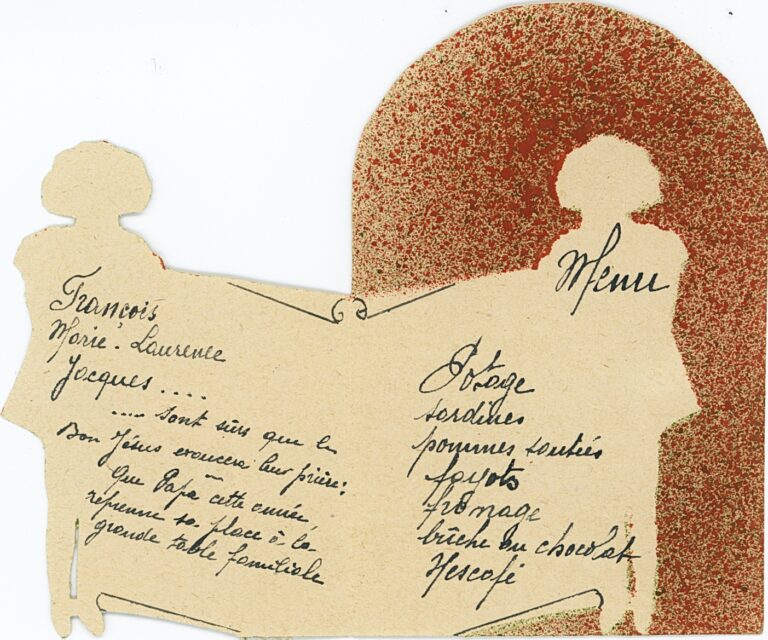 François
Marie-Laurence
Jacques ....
.... sont sûrs que le
Bon Jésus exaucera leur prière :
Que Papa cette année
reprenne sa place à la
grande table familiale
Menu
Potage
sardines
pommes sautées
fayots
fromage
bûche au chocolat
Nescafé